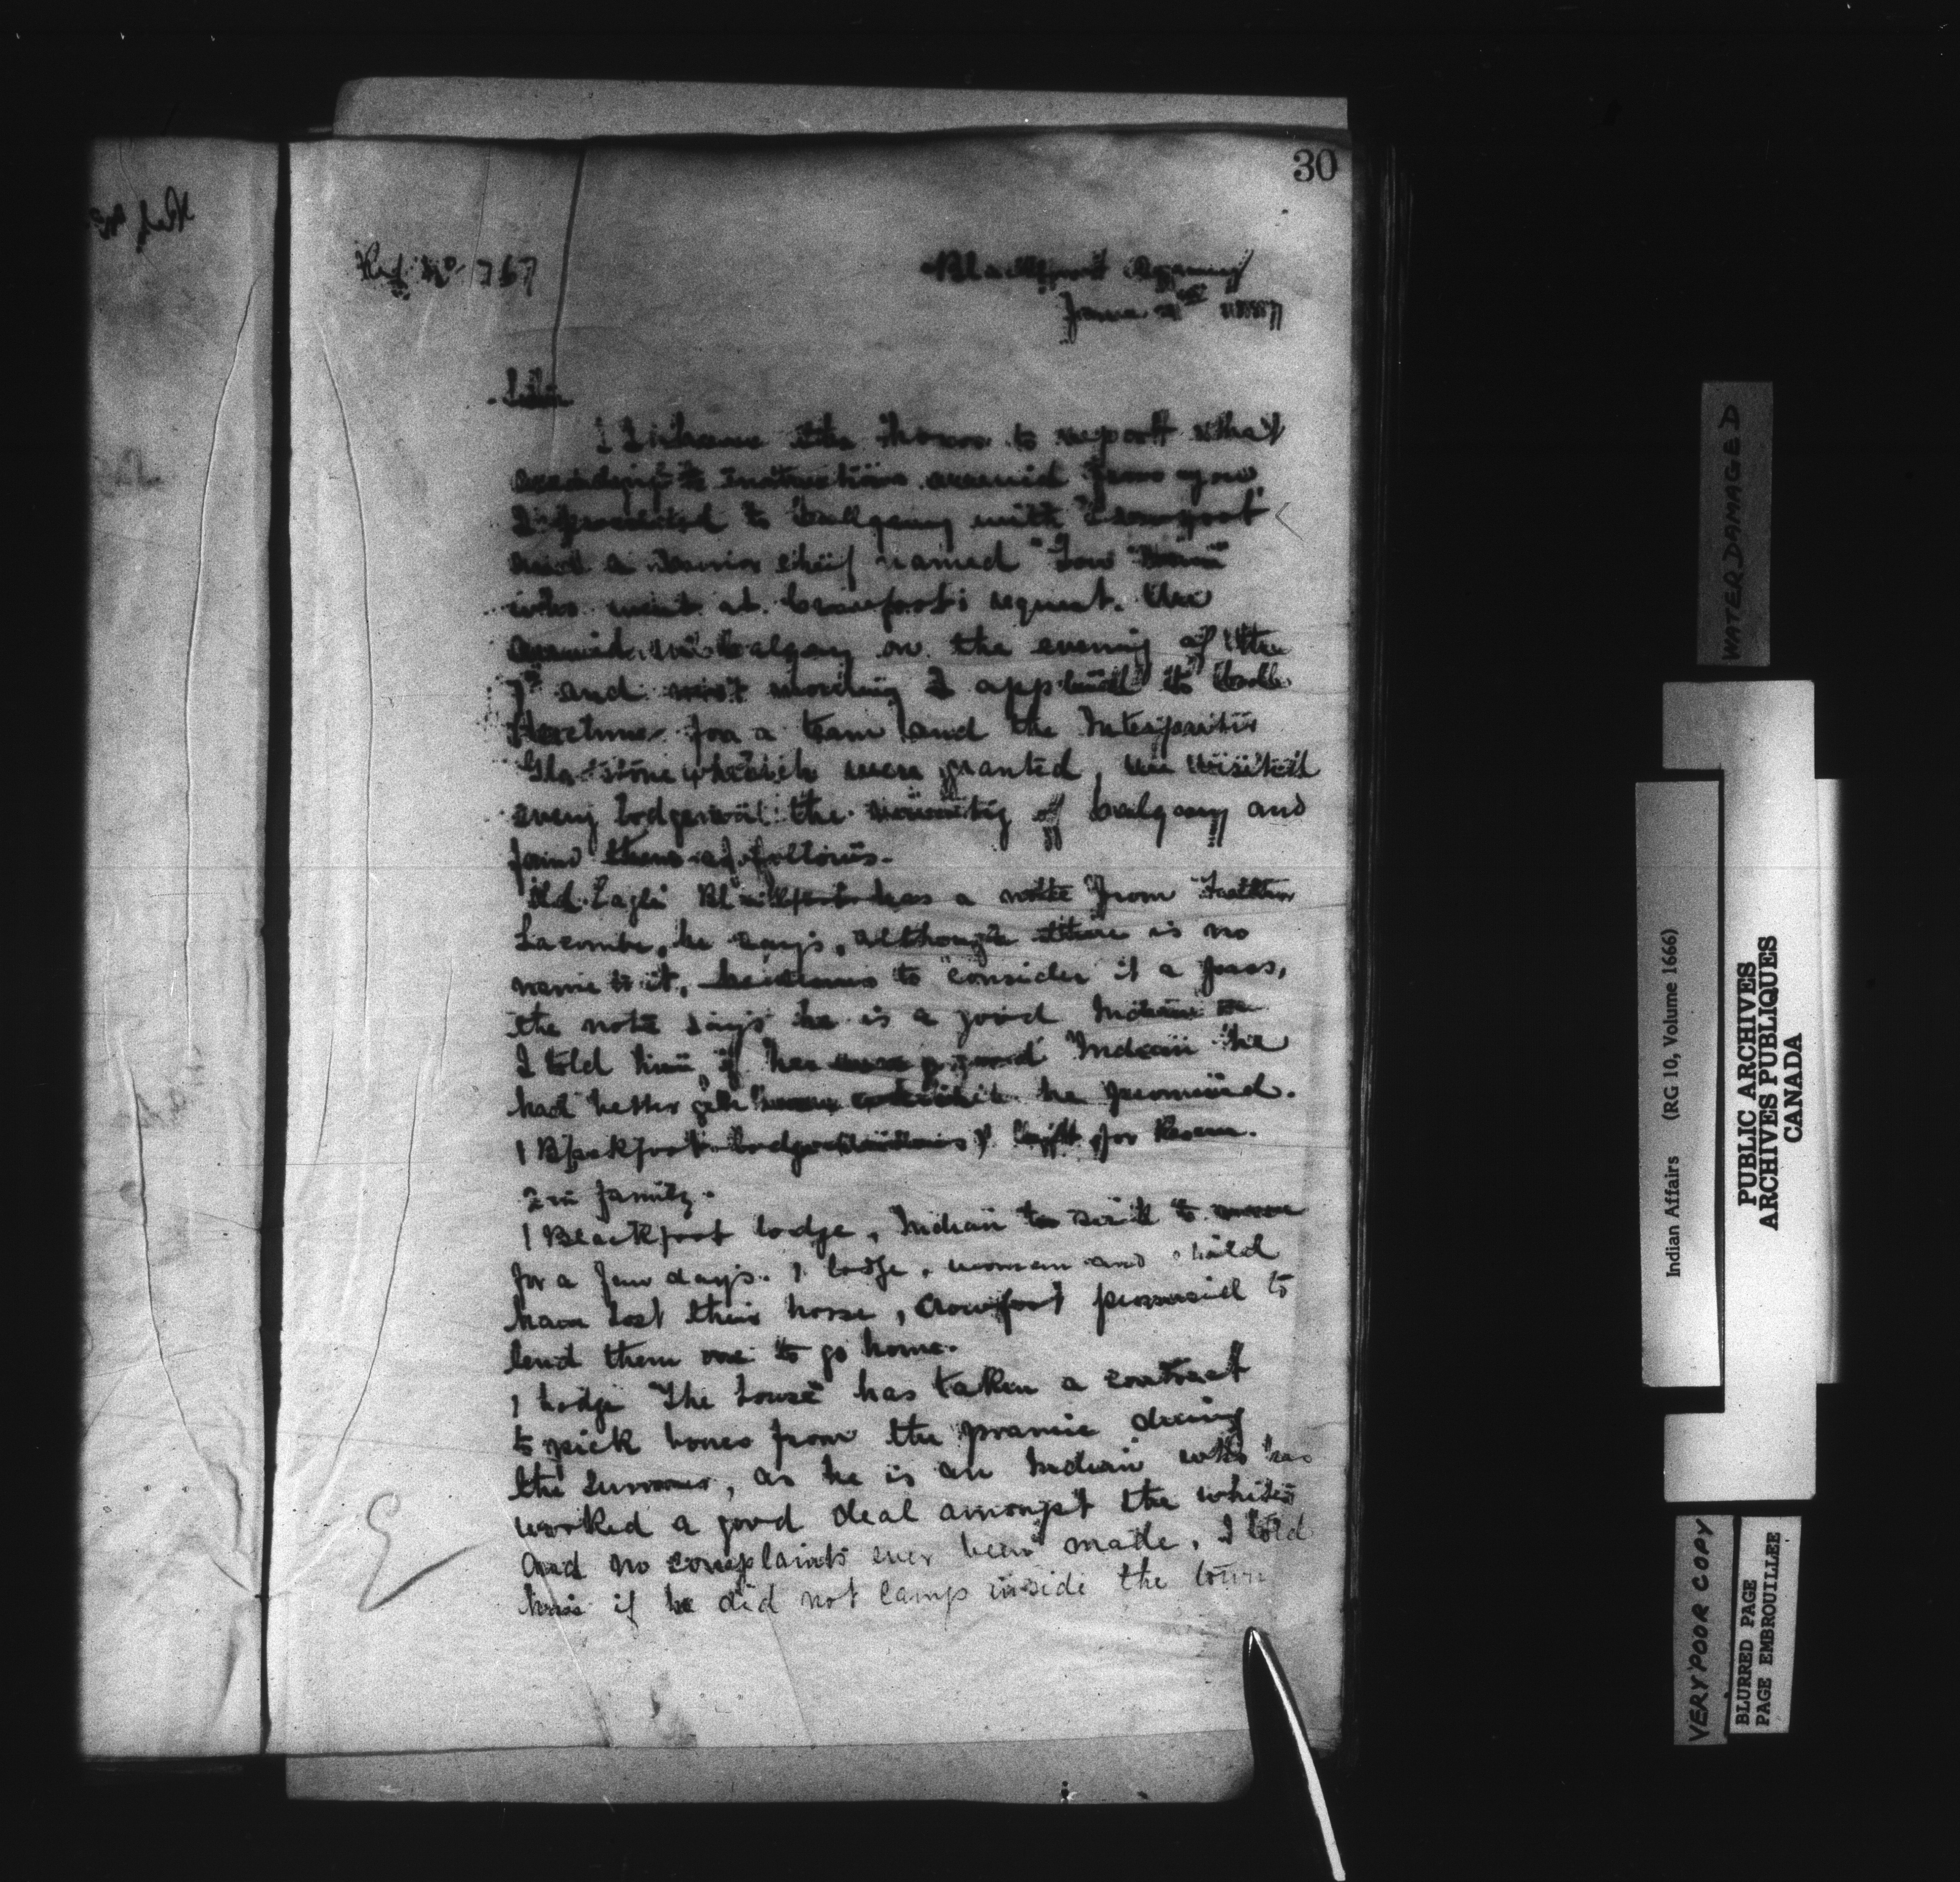 30
Ref. No 767
Blackfoot Agency
June
Sir
I have the honor to report that
according to instructions received from you
I proceeded to Calgary with Crowfoot
and a minor chief named "Low Horn"
who went at Crowfoot's request. We
arrived in Calgary on the evening of the
7th and next morning I applied to
for a team and the Interpreter
Gladstone which were granted, we visited
every lodge in the vicinity of Calgary and
found them as follows.
Old Eagle Blackfoot has a note from Father
Lacombe, he says, although there is no
name to it, he seems to consider it a pass,
the note says he is a good Indian
I told him if he was a good Indian he
had better he promised.
1 Blackfoot lodge left for Reserve.
2 in family.
1 Blackfoot lodge, Indian too sick to move
for a few days. 1 lodge, woman and child
have lost their horse, Crowfoot promised to
lend them one to go home.
1 Lodge "The " has taken a contract
to pick bones from the prairie during
the summer, as he is an Indian who has
worked a good deal amongst the whites
and no complaints ever been made, I told
him if he did not camp inside the town
WATER DAMAGED
Indian Affairs (RG 10, Volume 1666)
PUBLIC ARCHIVES
ARCHIVES PUBLIQUES
CANADA
VERY POOR COPY
BLURRED PAGE
PAGE EMBROUILLEE